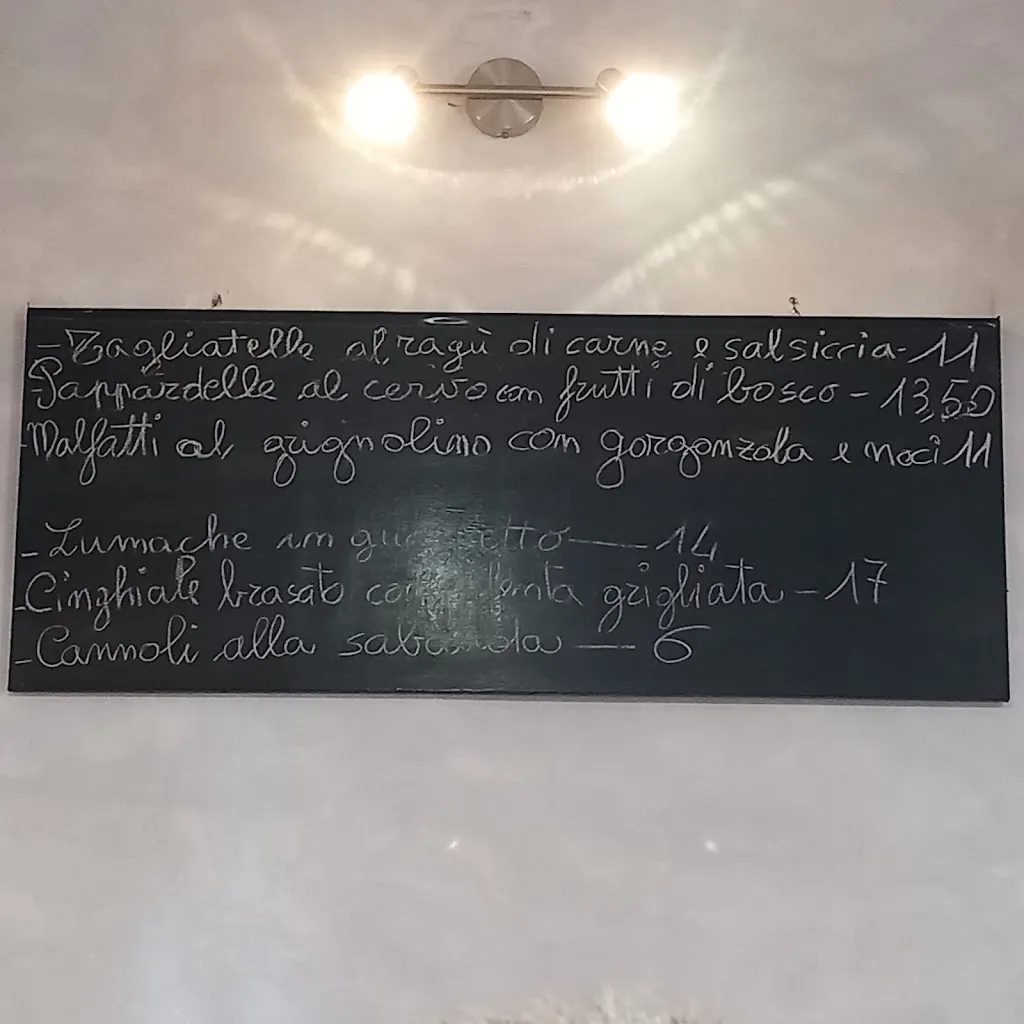 - Tagliatelle al ragù di carne e salsiccia - 11
- Pappardelle al cervo con frutti di bosco - 13,50
- Malfatti al grignolino con gorgonzola e noci 11
- Lumache in guazzetto — 14
- Cinghiale brasato con polenta grigliata - 17
- Cannoli alla sabauda — 6